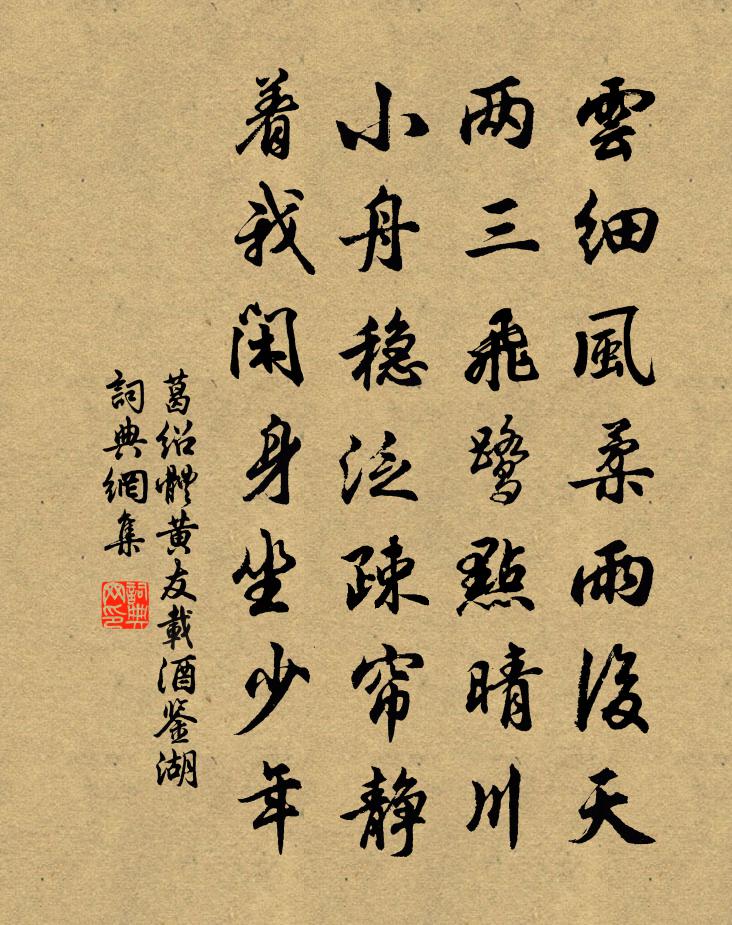 雲細風柔雨後天
两三飛鷺點晴川
小舟稳泛疎帘静
着我閑身坐少年
葛绍體黄友載酒鉴湖
詞典網集
詞典网印